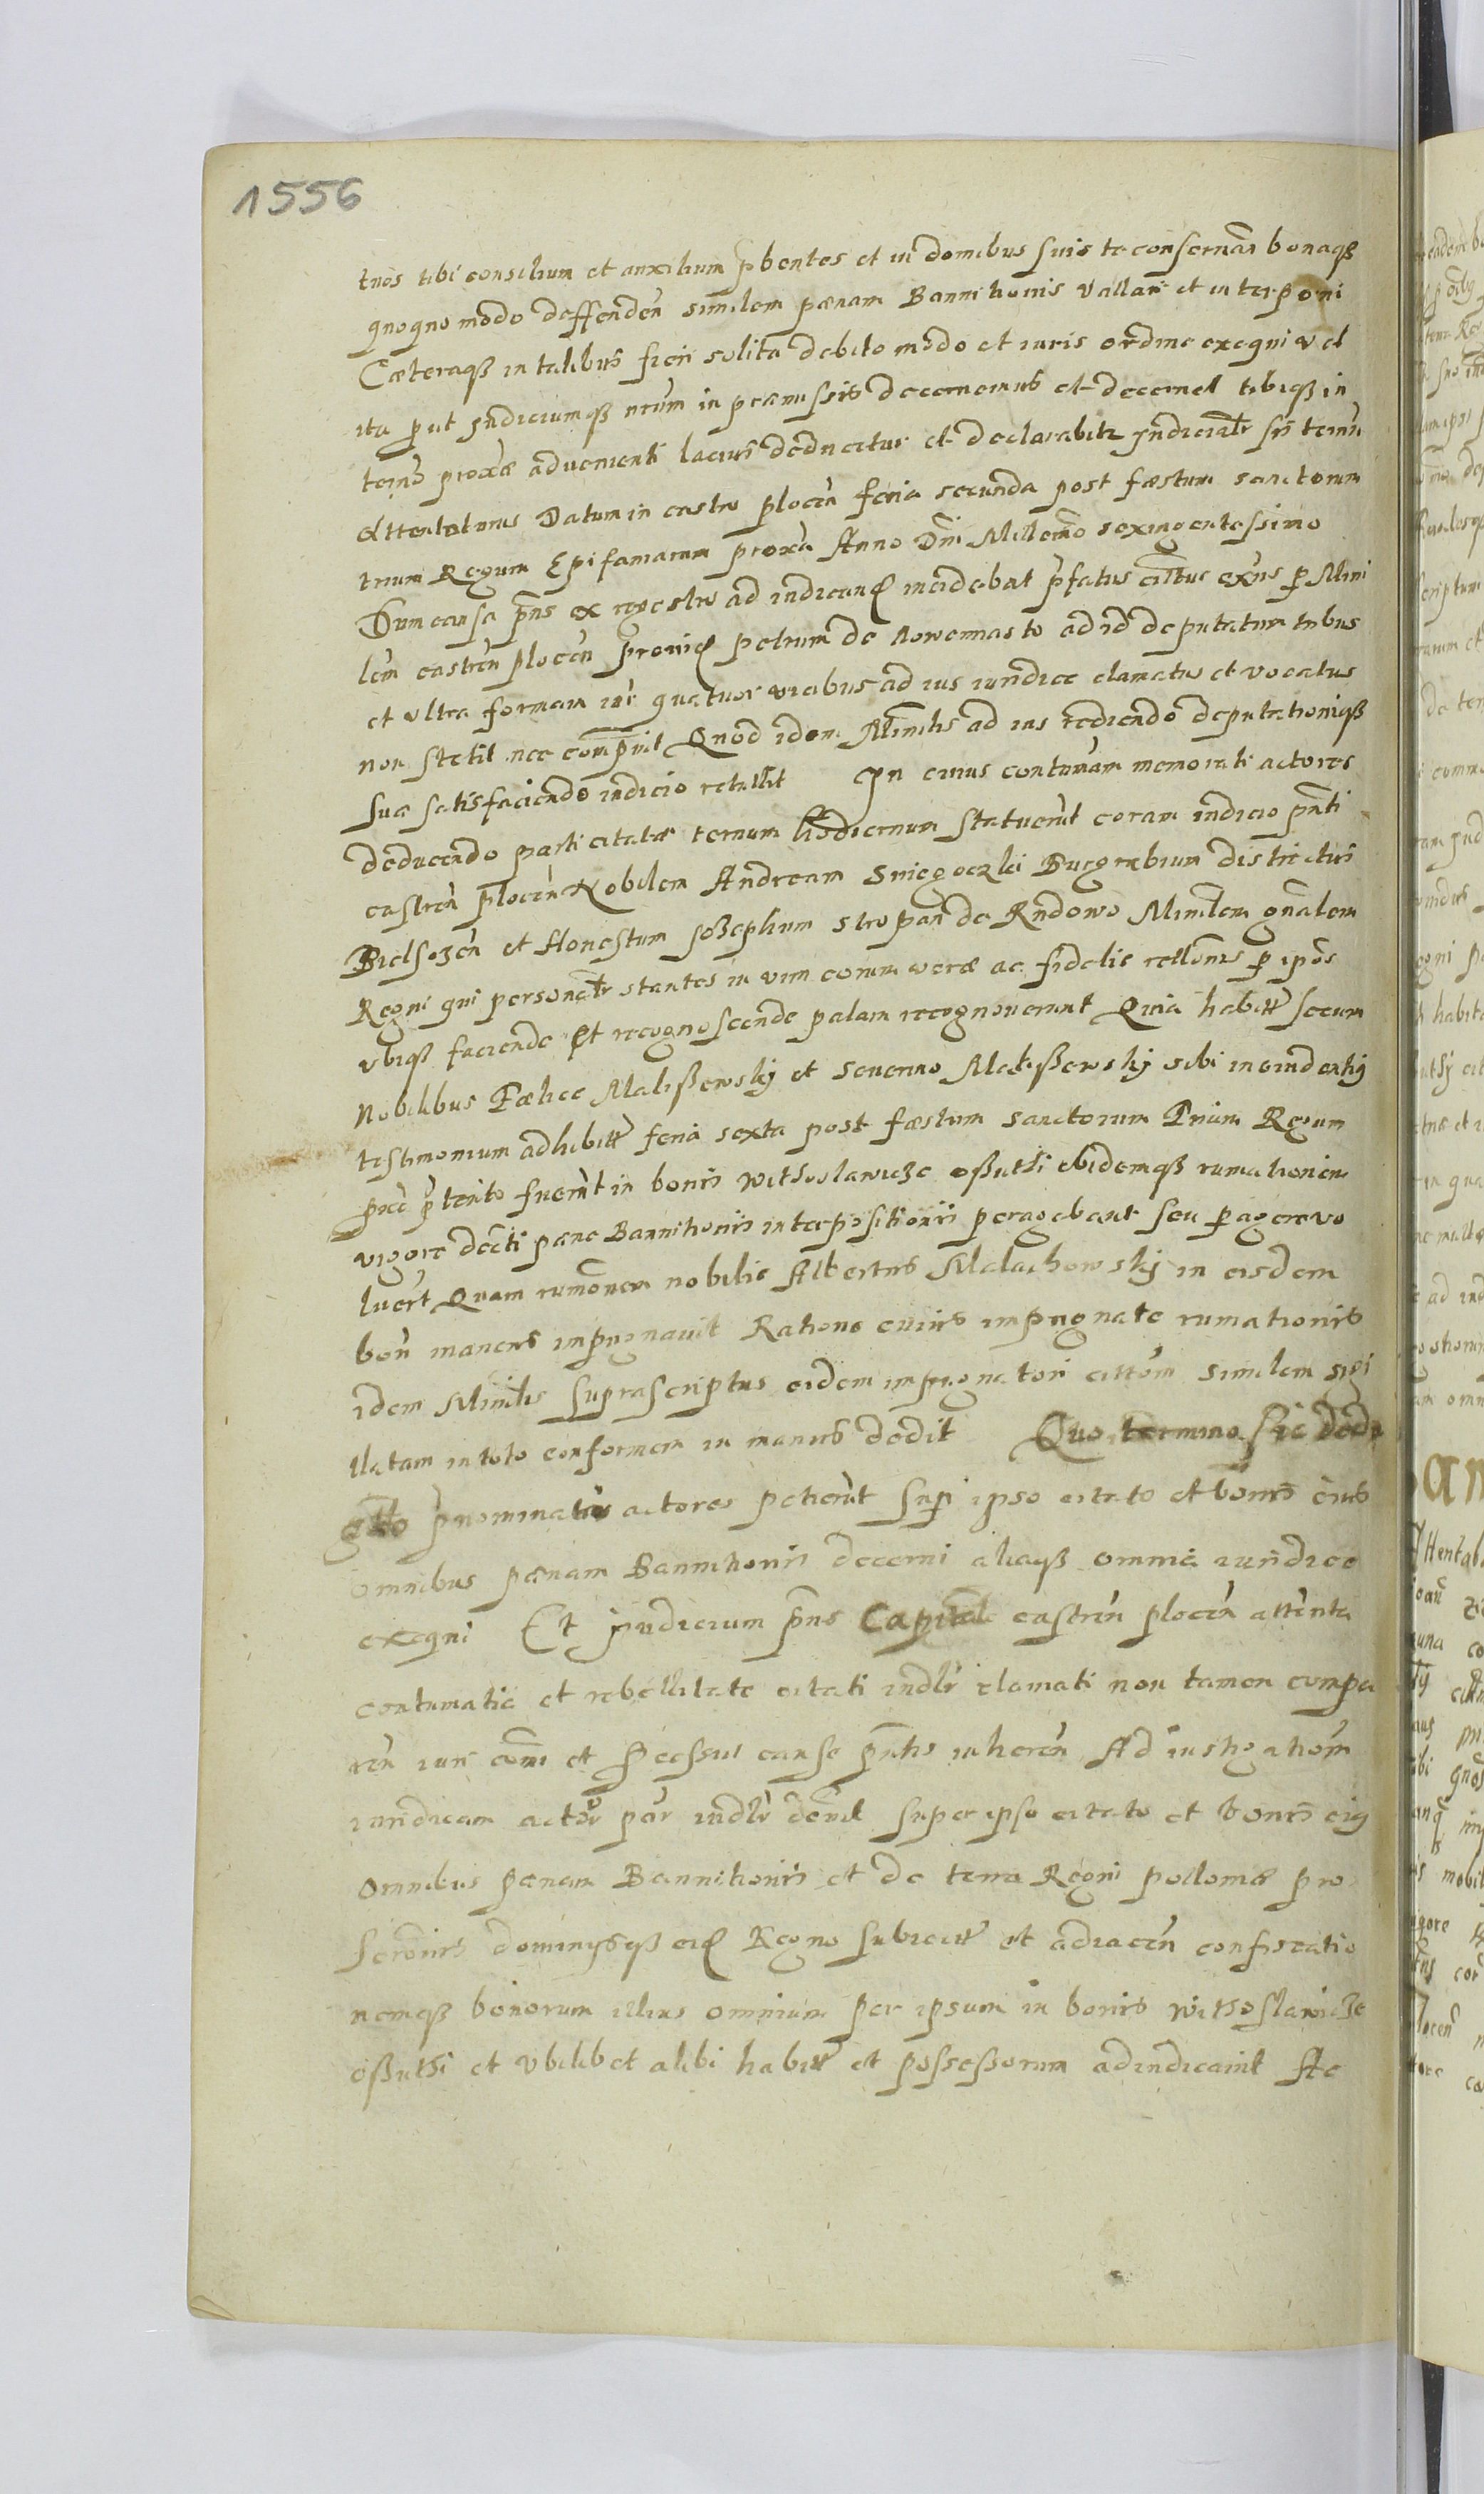 1556
tuos tibi consilium et auxilium pbentes et in domibus suis te conservan̄ bonaqß
quoquo modo deffenden̄ similem pænam Bannitionis vallari et interponi
Cæteraqß in talibus fieri solita debito modo et iuris ordine exequi vel
ita put Iudiciumqß nrūm in præmissis decernemus et decernet tibiqß in
term̄o proxe advenienti lacius deducetur et declarabitr Iudicialr̄ sis termū
attentaturus Datum in castro plocen̄ feria secunda post fæstum sanctorum
trium Regum Epifaniarum proxā Anno Dn̄i Millemo sexingentessimo
Dum causa pn̄s ex regestro ad iudicand incidebat p̄fatus cittus exn̄s p Mini
lēm castren̄ plocen̄ provid petrum de Noweiasto ad id deputatum tribus
et ultra formam iur̄ quatuor vicibus ad ius iuridice clamatus et vocatus
non stetit nec compuit Quod idem Minilis ad ius rediendo deputationiqß
suæ satisfaciendo iudicio retullit In cuius contumām memorati actores
deducendo parti citatæ ternum hodiernum statuerūt coram iudicio pn̄ti
castren̄ plocen̄ Nobilem Andream Sniegoczki Burgrabium districtus
Bielsczen̄ et Honestum Iozephum stropan de Rudowo Minilem gn̄alem
Regni qui personalr̄ stantes in vim eorum veræ ac fidelis rellonis p ipos
ubiqß faciende Et recognoscende palam recognoverunt Quia habitt secum
Nobilibus Fælice Malißewskÿ et Severino Malißewskÿ sibi in eiundem
testimonium adhibitt feria sexta post fæstum sanctorum Trium Regum
pxe p̄terito fuerūt in bonis withoslawicze oßuthi ibidemqß rumationem
vigore decti pæne Bannitionis interpositionis peragebant seu p̄agere vo
luert Quam rumōnem nobilis Albertus Malachowskÿ in eisdem
bon̄ manens impugnavit Ratione cuius impugnate rumationis
idem Minilis suprascriptus eidem impugnatori cittom similem sigi
llatam in toto conformem in manus dedit Quo termino sic dedu
p̄nominatus actores petierūt super ipso citato et bonis eius
omnibus pænam Bannitionis decerni aliaqß omnia iuridice
exequi Et Iudicium pn̄s Capitale castren̄ plocen̄ attenta
contumatia et rebellitate citati iudlr̄ clamati non tamen compa
ren̄ iuri com̄ et processui cause pn̄tis inheren̄ Ad instigationem
iuridicam actor̄ par̄ iudlr̄ dēvit super ipso citato et bonis eiq
omnibus pænam Bannitionis et de terra Regni polloniæ pro
scronis dominysqß eid Regno subiectt et adiacen̄ confiscatio
nemqß bonorum illius omnium per ipsum in bonis withoslawicze
oßuthi et ubilibet alibi habitt et possessorum adiudicavit Ac